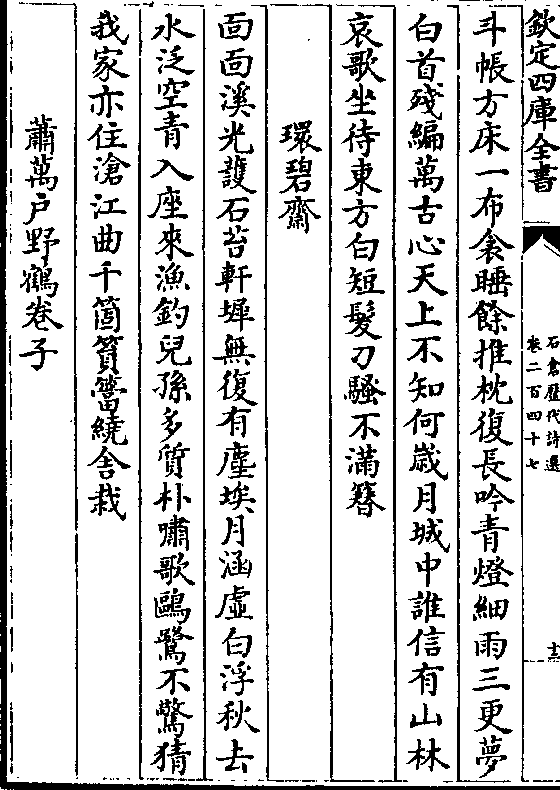 欽定四庫全書
石倉歷代詩選
卷二百四十七
十三
斗帳方床一布衾睡餘推枕復長吟青燈細雨三更夢
白首殘編萬古心天上不知何嵗月城中誰信有山林
哀歌坐待東方白短髮刁騷不滿簪
環碧齋
面面溪光護石苔軒墀無復有塵埃月涵虛白浮秋去
水泛空青入座來漁釣兒孫多質朴嘯歌鷗鷺不驚猜
我家亦住滄江曲千箇篔簹繞舍栽
蕭萬户野鶴卷子